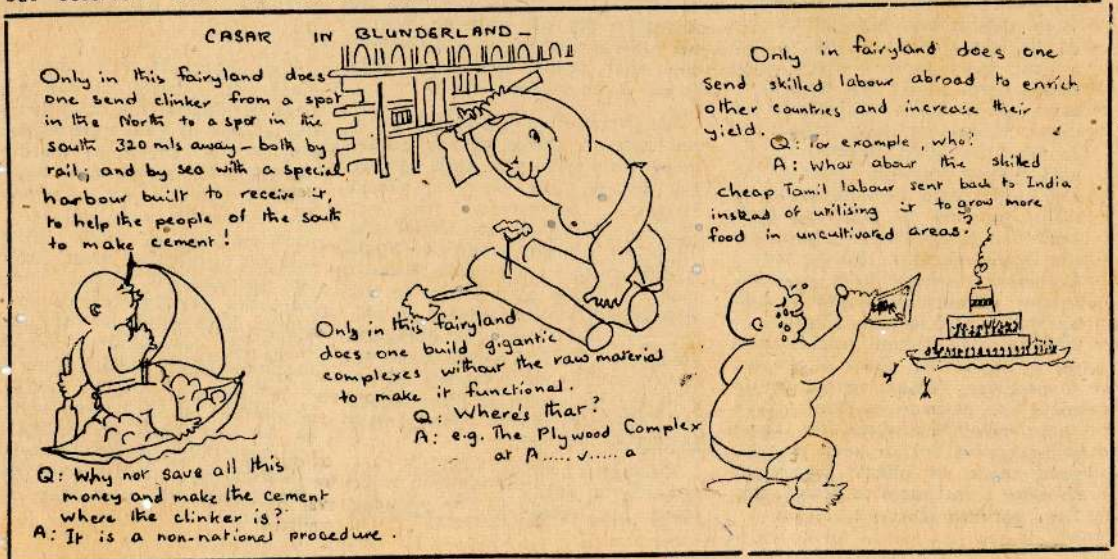 CASAR IN BLUNDERLAND –
Only in this fairyland does
one send clinker from a spot
in the North to a spot in the
south 320 mls away – both by
rail; and by sea with a special
harbour built to receive it,
to help the people of the south
to make cement!
Q: Why not save all this
money and make the cement
where the clinker is?
A: It is a non-national procedure.
Only in this fairyland
does one build gigantic
complexes without the raw material
to make it functional.
Q: Where's that?
A: e.g. The Plywood Complex
at A.....v.....a
Only in fairyland does one
send skilled labour abroad to enrich
other countries and increase their
yield.
Q: For example, who?
A: What about the skilled
cheap Tamil labour sent back to India
instead of utilising it to grow more
food in uncultivated areas?